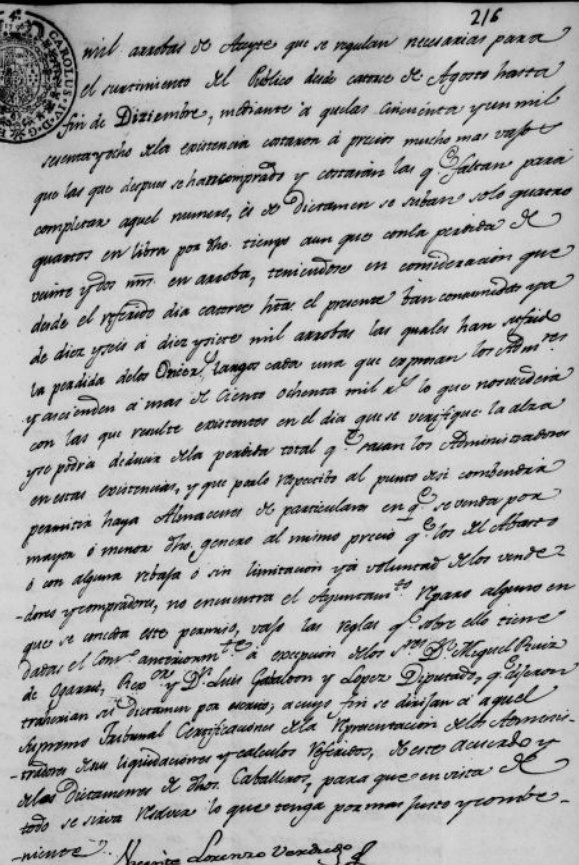 216
CAROLUS·IV·D·G·
mil arrobas de Azeyte que se regulan necesarias para
el surtimiento del Público desde catorce de Agosto hasta
fin de Diziembre, mediante a que las cincuenta y un mil
sesenta y ocho dela existencia costaron á precios mucho mas vajos
que las que despues se han comprado y costarán las q.e faltan para
completar aquel numero, es de Dictamen se suban solo quatro
quartos en libra por dho. tiempo aun que con la perdida de
veinte y dos mrs. en arroba, teniendose en consideración que
desde el referido dia catorce hta. el presente han consumidose ya
de diez y seis á diez y siete mil arrobas las quales han sufrido
la perdida delos Onze r.s largos cada una que expresan los Adm.res
y ascienden á mas de Ciento Ochenta mil r.s lo que no sucederia
con las que resulte existentes en el dia que se verifique la alza
y se podria deducir dela perdida total q.e sacan los Administradores
en estas existencias, y que por lo respectivo al punto de si combendria
permitir haya Almacenes de particulares en q.e se venda por
mayor ó menor dho. genero al mismo precio q.e los del Abasto
ó con alguna rebaja ó sin limitacion y á voluntad delos vende-
-dores y compradores, no encuentra el Ayuntam.to reparo alguno en
que se conceda este permiso, vajo las reglas q.e sobre ello tiene
dadas el Cons.o anteriorm.te á excepcion delos S.res D.n Miguel Ruiz
de Ogarrio, Rex.or y D.n Luis Gabaldon y Lopez Diputado, q.e dijeron
traherian su dictamen por escrito; a cuyo fin se dirijan á aquel
Supremo Tribunal Certificaciones dela Representacion delos Adminis-
-tradores de sus liquidaciones y calculos referidos, de este acuerdo y
delos Dictamenes de dhos. Caballeros, para que en vista de
todo se sirva resolver lo que tenga por mas justo y combe-
-niente.
Vicente Lorenzo Verdugo